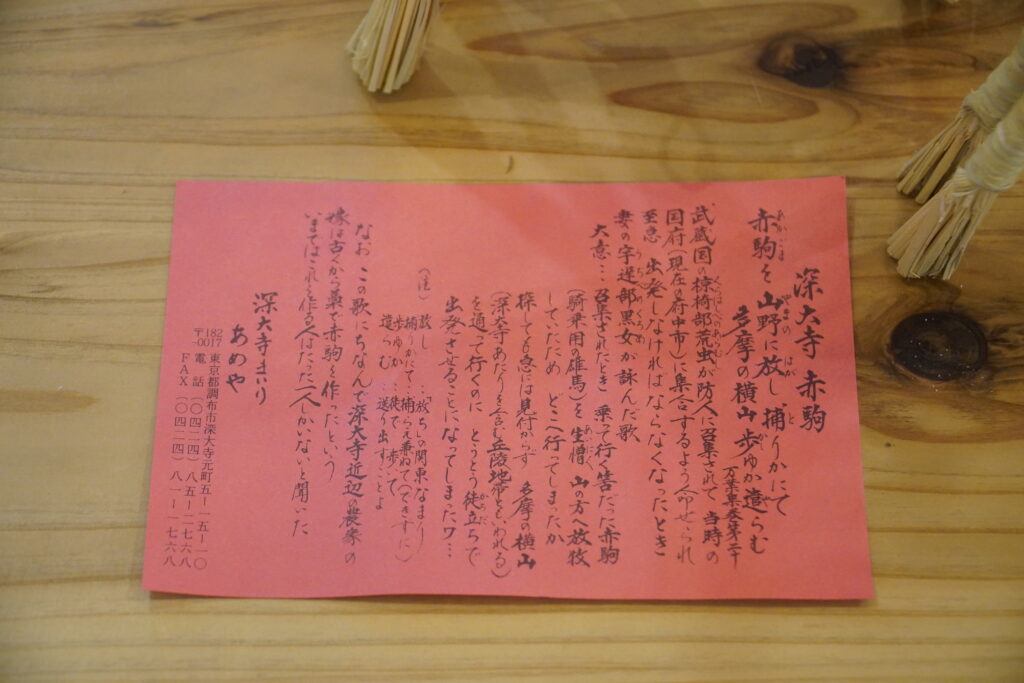 深大寺 赤駒
赤駒を 山野に放し 捕りかにて
多摩の横山 歩ゆか遣らむ
万葉集巻第二十
武蔵国の椋椅部荒虫が防人に召集されて 当時の
国府(現在の府中市)に集合するよう命ぜられ
至急 出発しなければならなくなったとき
妻の宇遅部黒女が詠んだ歌
大意…召集されたとき 乗って行く筈だった赤駒
(騎乗用の雄馬)を生憎 山の方へ放牧
していたため どこへ行ってしまったか
探しても急には見付からず 多摩の横山
(深大寺あたりを含む丘陵地帯ともいわれる)
を通って行くのに とうとう徒立ちで
出発させることになってしまったワ…
(注) 放し…「放ち」の関東なまり
捕りかにて…捕らえ兼ねて(できずに)
歩ゆか…徒で歩いて
遣らむ…送り出すことよ
なお この歌にちなんで深大寺近辺の農家の
嫁は古くから藁で赤駒を作ったという
いまではこれを作る人はたった一人しかいないと聞いた
深大寺まいり
あめや
〒182-0017 東京都調布市深大寺元町五ー一五ー一〇
電話(〇四二四)八五ー二七六八
FAX(〇四二四)八一ー一七六八